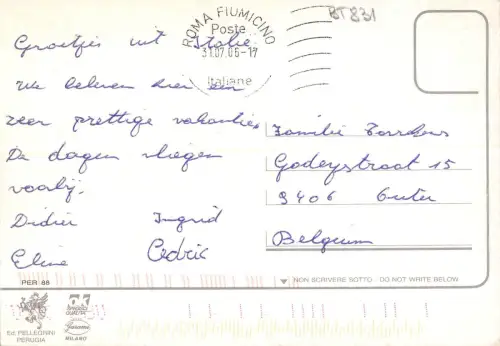 BT831
ROMA FIUMICINO
Poste
31.07.05-17
Italiane
Groetjes uit Italie.
We beleven hier een
zeer prettige vakantie.
De dagen vliegen
voorbij.
Didier Ingrid
Eline Cedric
Familie
Godeystraat 15
9406 Outer
Belgium
PER 88
NON SCRIVERE SOTTO DO NOT WRITE BELOW
Ed. PELLEGRINI
PERUGIA
MILANO